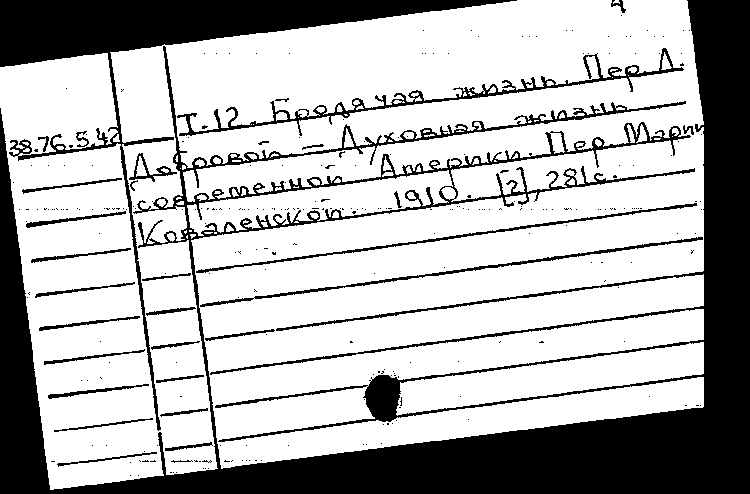 4
Т.12. Бродячая жизнь. Пер. Л.
38.76.5.42
Добровой — Духовная жизнь
современной Америки. Пер. Марии
Коваленской. 1910. [2], 281с.